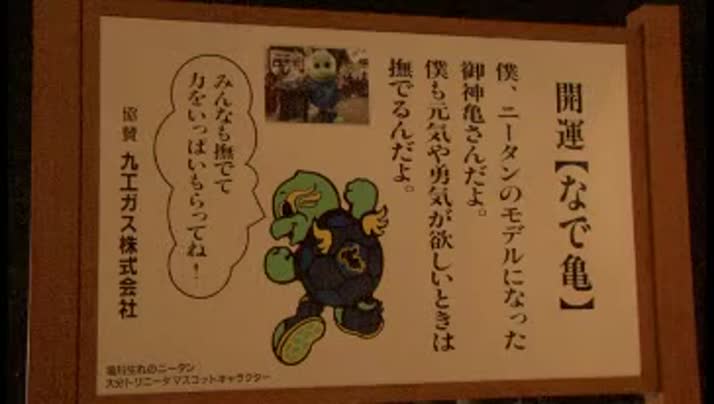 開運【なで亀】
僕、ニータンのモデルになった
御神亀さんだよ。
僕も元気や勇気が欲しいときは
撫でるんだよ。
みんなも撫でて
力をいっぱいもらってね！
協賛 九工ガス株式会社
亀川生れのニータン
大分トリニータ マスコットキャラクター